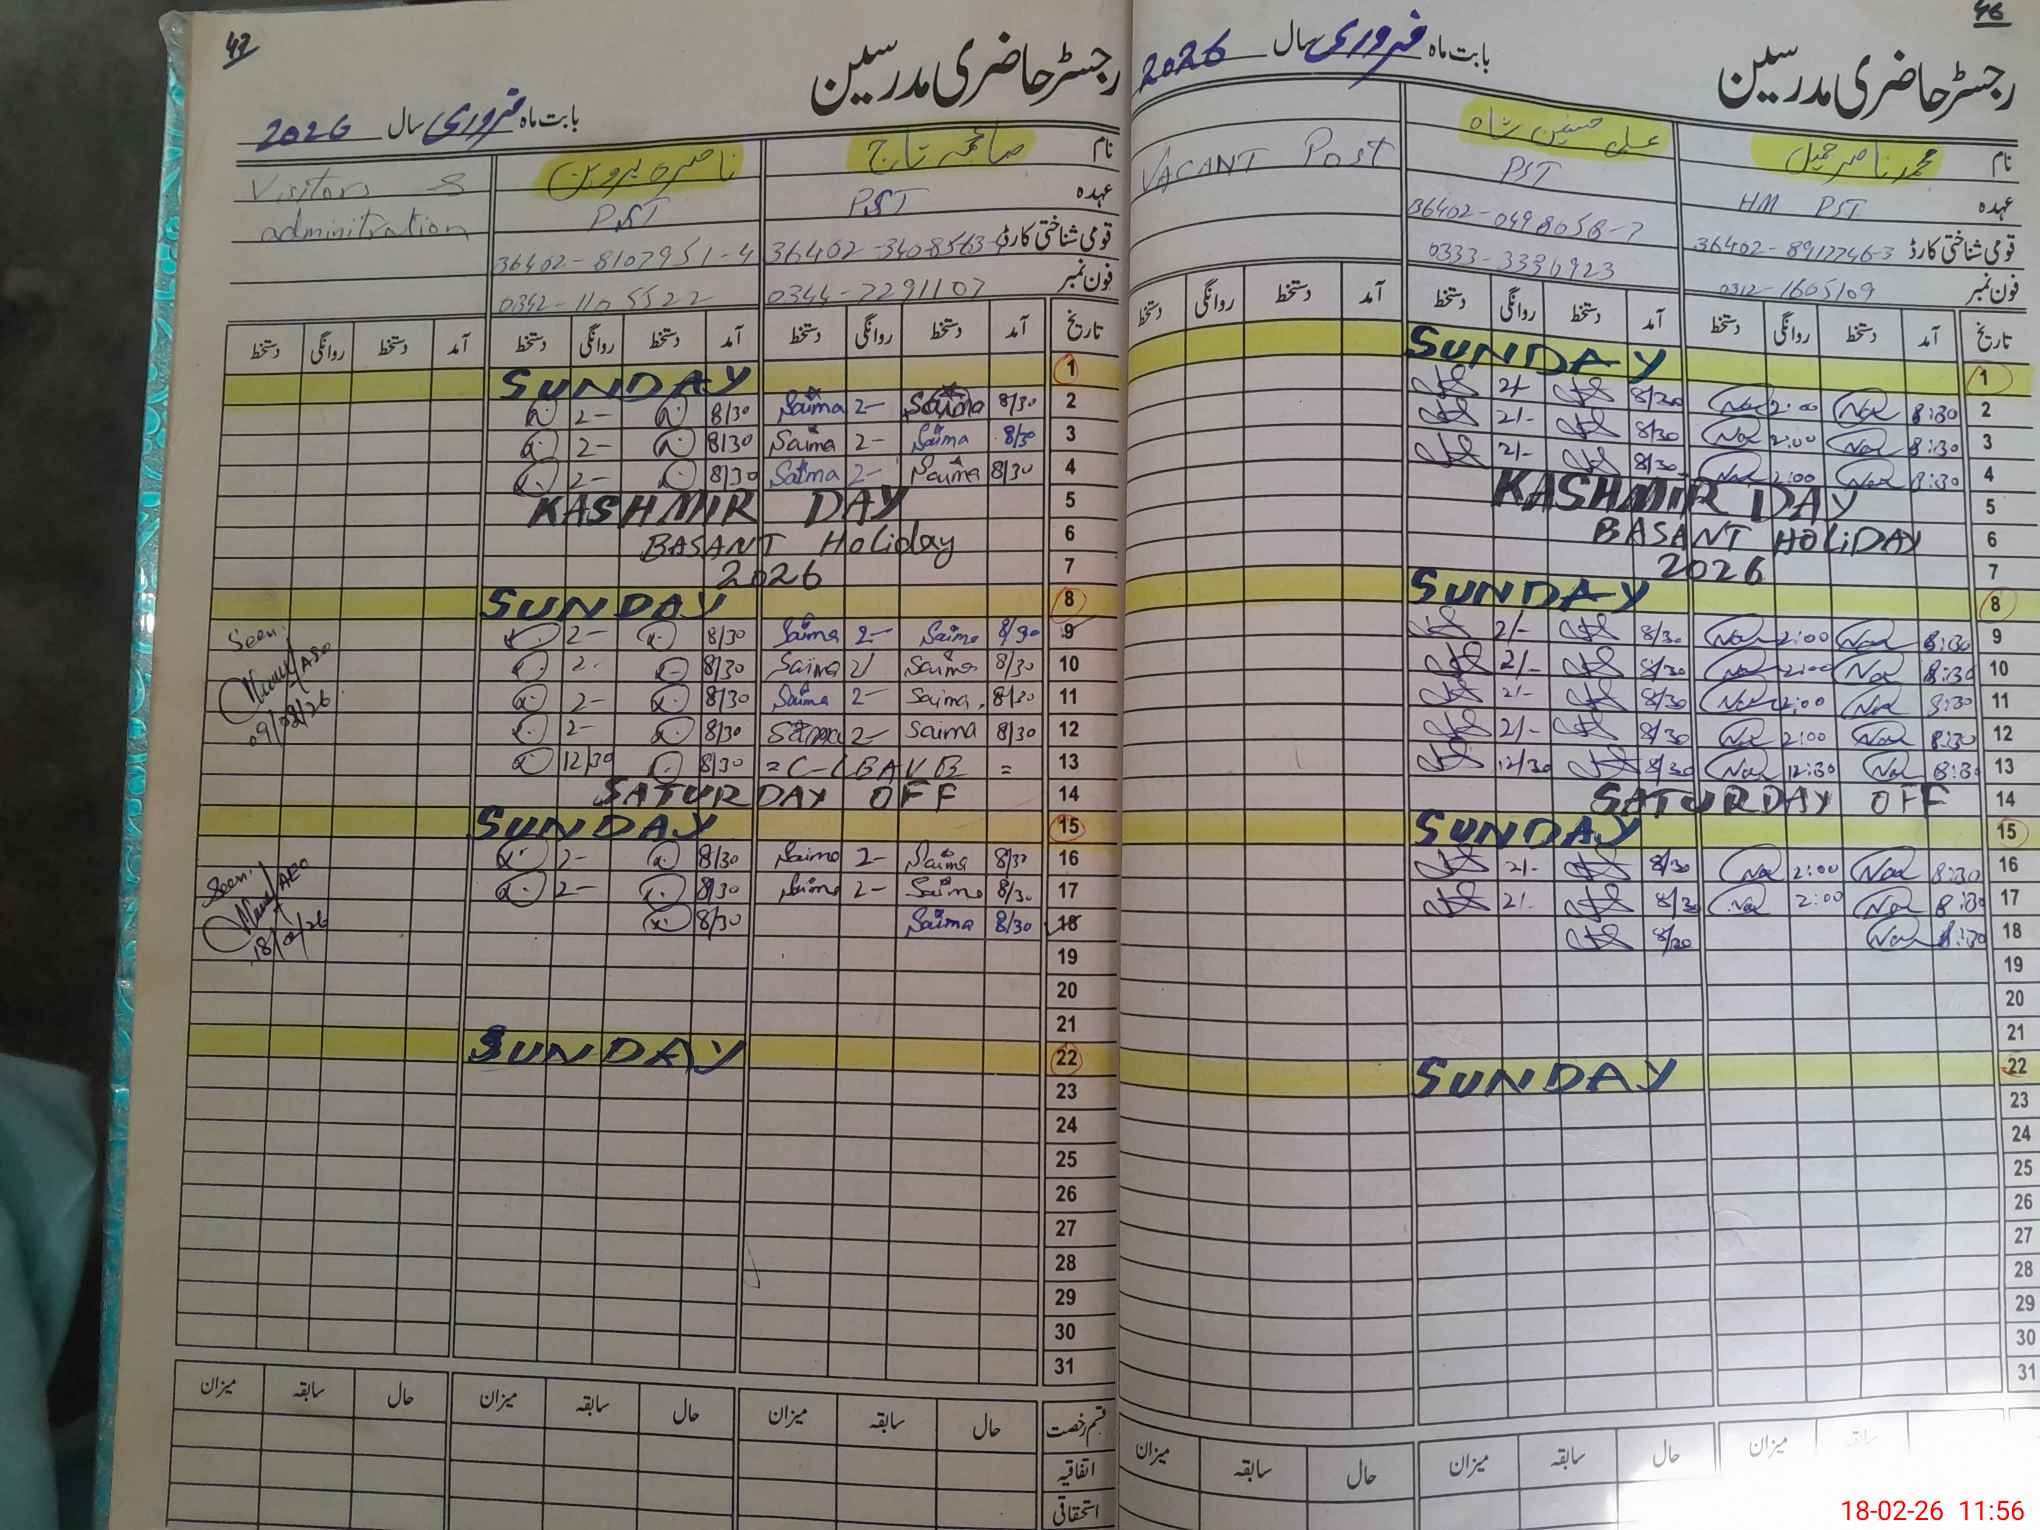 47
رجسٹر حاضری مدرسین
بابت ماہ فروری سال 2026
نام صائمہ تاج ناصرہ پروین Visitors &
عہدہ PST PST adminitration
قومی شناختی کارڈ 36402-8107951-4
فون نمبر 0344-7291107 0342-1105522
تاریخ آمد دستخط روانگی دستخط آمد دستخط روانگی دستخط آمد دستخط روانگی دستخط
1 SUNDAY
2 8/30 Saima 2- Saima 8/30 2-
3 8/30 Saima 2- Saima 8/30 2-
4 8/30 Saima 2- Saima 8/30 2-
5 KASHMIR DAY
6 BASANT Holiday
7 2026
8 SUNDAY
9 8/30 Saima 2- Saima 8/30 2- Seen
10 8/30 Saima 2/ Saima 8/30 2- ASO
11 8/30 Saima 2- Saima 8/30 2- 09/02/26
12 8/30 Saima 2- Saima 8/30 2-
13 = C-LEAVE = 8/30 12/30
14 SATURDAY OFF
15 SUNDAY
16 8/30 Saima 2- Saima 8/30 2- Seen
17 8/30 Saima 2- Saima 8/30 2- AEO
18 8/30 Saima 8/30 18/02/26
19
20
21
22 SUNDAY
23
24
25
26
27
28
29
30
31
قسم رخصت حال سابقہ میزان حال سابقہ میزان حال سابقہ میزان
اتفاقیہ
استحقاقی
46
رجسٹر حاضری مدرسین
بابت ماہ فروری سال 2026
نام محمد ناصر جمیل علی حسنین شاہ VACANT Post
عہدہ HM PST PST
قومی شناختی کارڈ 36402-8917746-3 36402-0498058-7
فون نمبر 0312-1605109 0333-3336923
تاریخ آمد دستخط روانگی دستخط آمد دستخط روانگی دستخط آمد دستخط روانگی دستخط
1 SUNDAY
2 8:30 Nar 2:00 Nar 8/30 2/-
3 8:30 Nar 2:00 Nar 8/30 2/-
4 8:30 Nar 2:00 Nar 8/30 2/-
5 KASHMIR DAY
6 BASANT HOLIDAY
7 2026
8 SUNDAY
9 8:30 Nar 2:00 Nar 8/30 2/-
10 8:30 Nar 2:00 Nar 8/30 2/-
11 8:30 Nar 2:00 Nar 8/30 2/-
12 8:30 Nar 2:00 Nar 8/30 2/-
13 8:30 Nar 12:30 Nar 8/30 12/30
14 SATURDAY OFF
15 SUNDAY
16 8:30 Nar 2:00 Nar 8/30 2/-
17 8:30 Nar 2:00 Nar 8/30 2/-
18 8:30 Nar 8/30
19
20
21
22 SUNDAY
23
24
25
26
27
28
29
30
31
سابقہ میزان حال سابقہ میزان حال سابقہ میزان
18-02-26 11:56